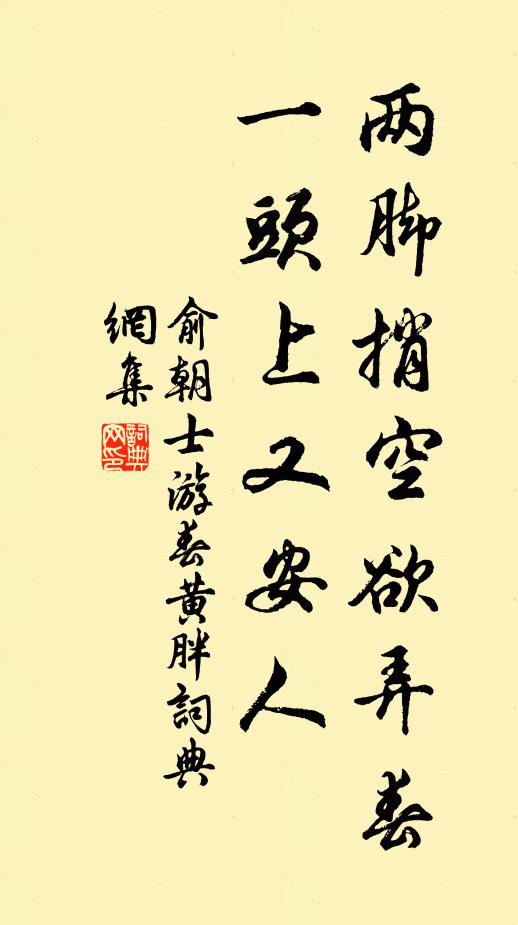 两脚捎空欲弄春
一頭上又安人
俞朝士游春黄胖詞典
網集
詞典
网印